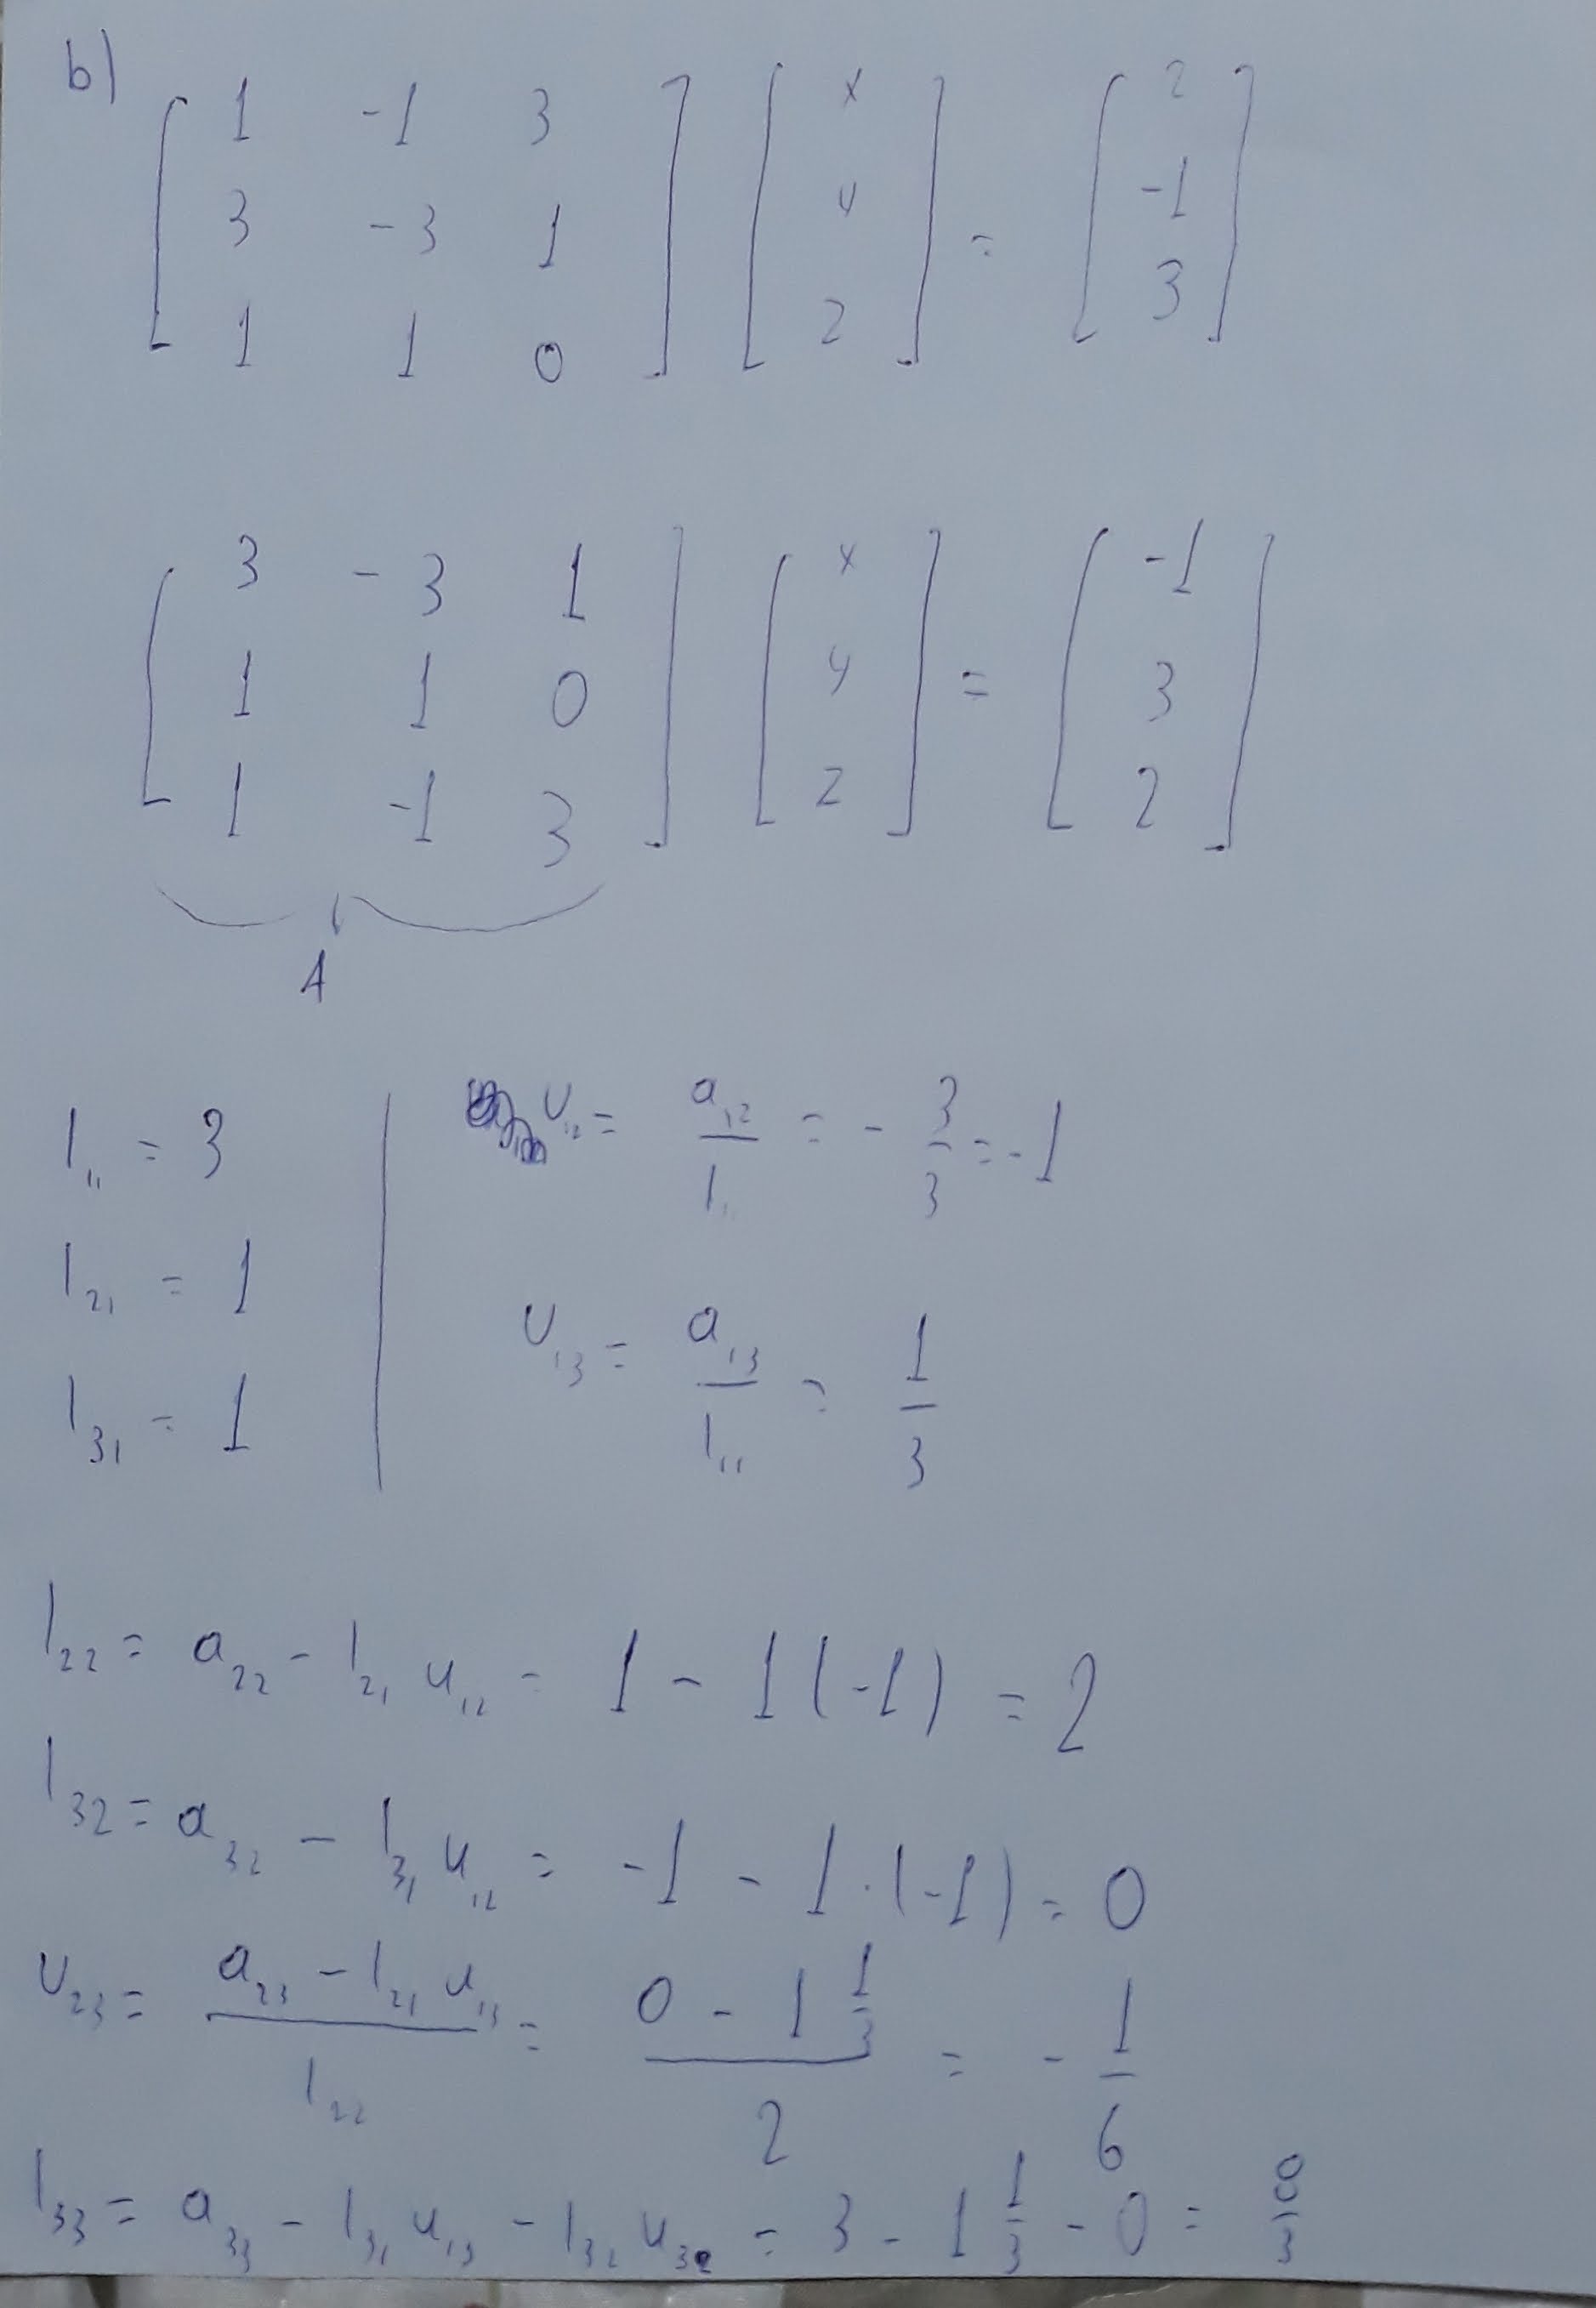 b)
[ 1 -1 3 ] [ x ] = [ 2 ]
[ 3 -3 1 ] [ y ] = [ -1 ]
[ 1 1 0 ] [ z ] = [ 3 ]
[ 3 -3 1 ] [ x ] = [ -1 ]
[ 1 1 0 ] [ y ] = [ 3 ]
[ 1 -1 3 ] [ z ] = [ 2 ]
A
l₁₁ = 3
l₂₁ = 1
l₃₁ = 1
u₁₂ = a₁₂/l₁₁ = -3/3 = -1
u₁₃ = a₁₃/l₁₁ = 1/3
l₂₂ = a₂₂ - l₂₁ u₁₂ = 1 - 1(-1) = 2
l₃₂ = a₃₂ - l₃₁ u₁₂ = -1 - 1·(-1) = 0
u₂₃ = (a₂₃ - l₂₁ u₁₃)/l₂₂ = (0 - 1 1/3)/2 = -1/6
l₃₃ = a₃₃ - l₃₁ u₁₃ - l₃₂ u₃₂ = 3 - 1 1/3 - 0 = 8/3